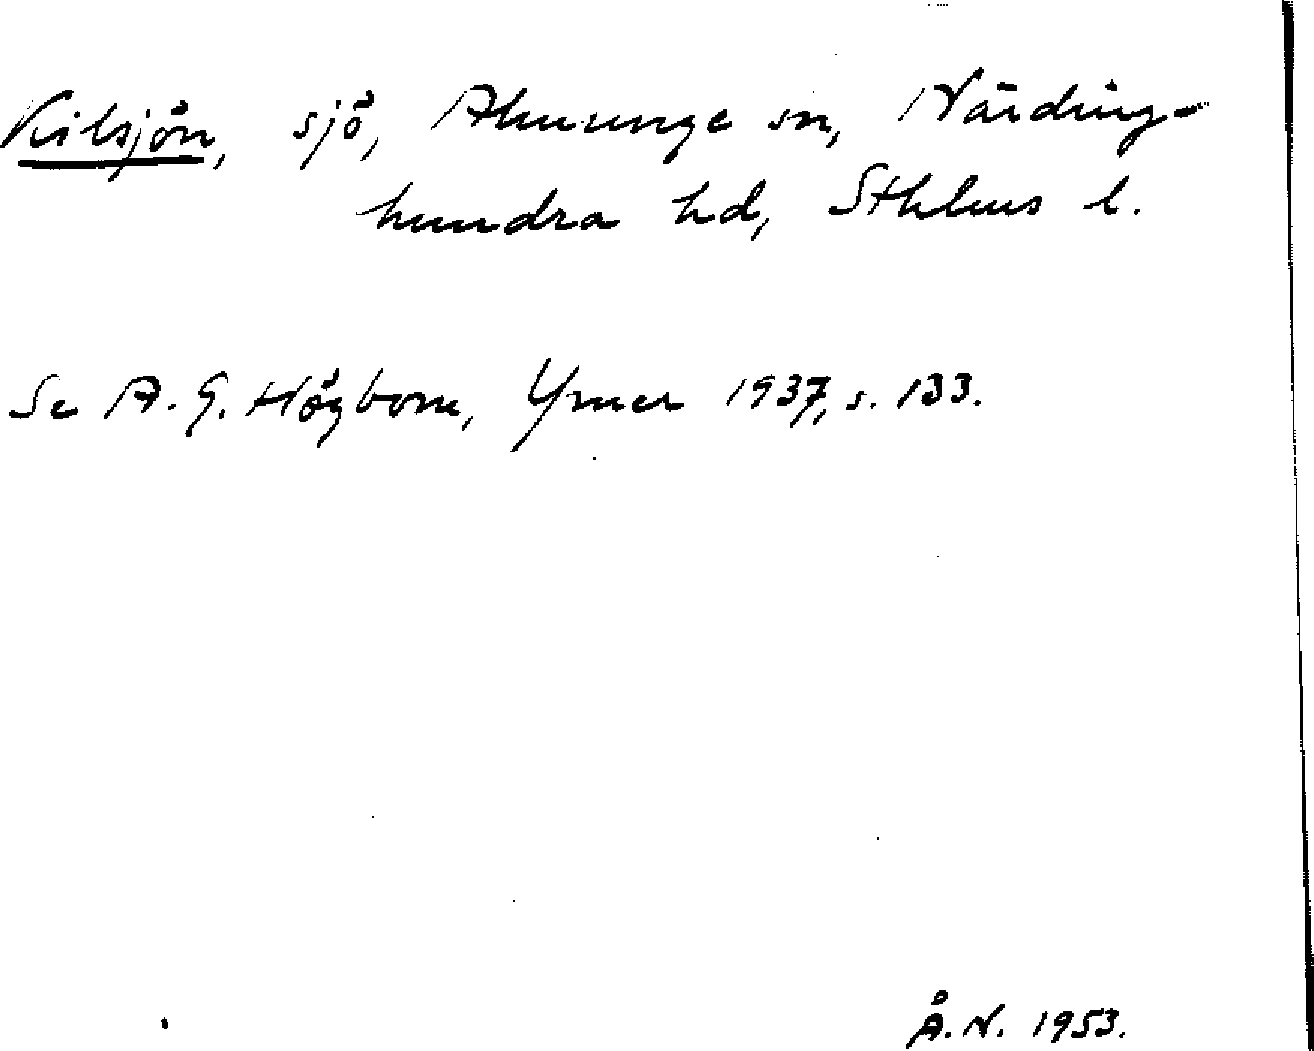 Kilsjön, sjö, Almunge sn, Närding-
hundra hd, Sthlms l.
Se A. G. Högbom, Ymer 1937, s. 133.
Å. N. 1953.